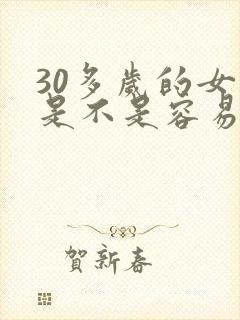 30多歲的女
是不是容易
賀新春